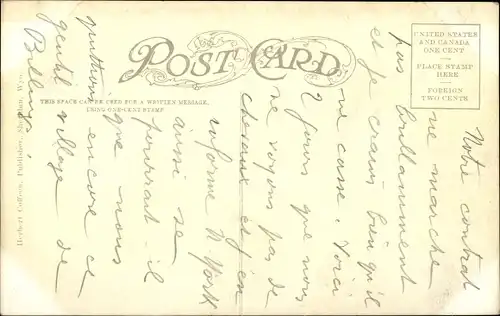 POST CARD
THIS SPACE CAN BE USED FOR A WRITTEN MESSAGE,
USING ONE-CENT STAMP.
UNITED STATES
AND CANADA
ONE CENT
PLACE STAMP
HERE
FOREIGN
TWO CENTS
Herbert Coffeen, Publisher, Sheridan, Wyo.
Notre contrat
ne marche
pas brillamment
et je crains bien qu'il
ne casse. Voici
2 jours que nous
ne voyons pas de
chevaux et j'en
informe N. York
aussi se
pourrait-il
que nous
quittions encore ce
gentil village de
Billings!